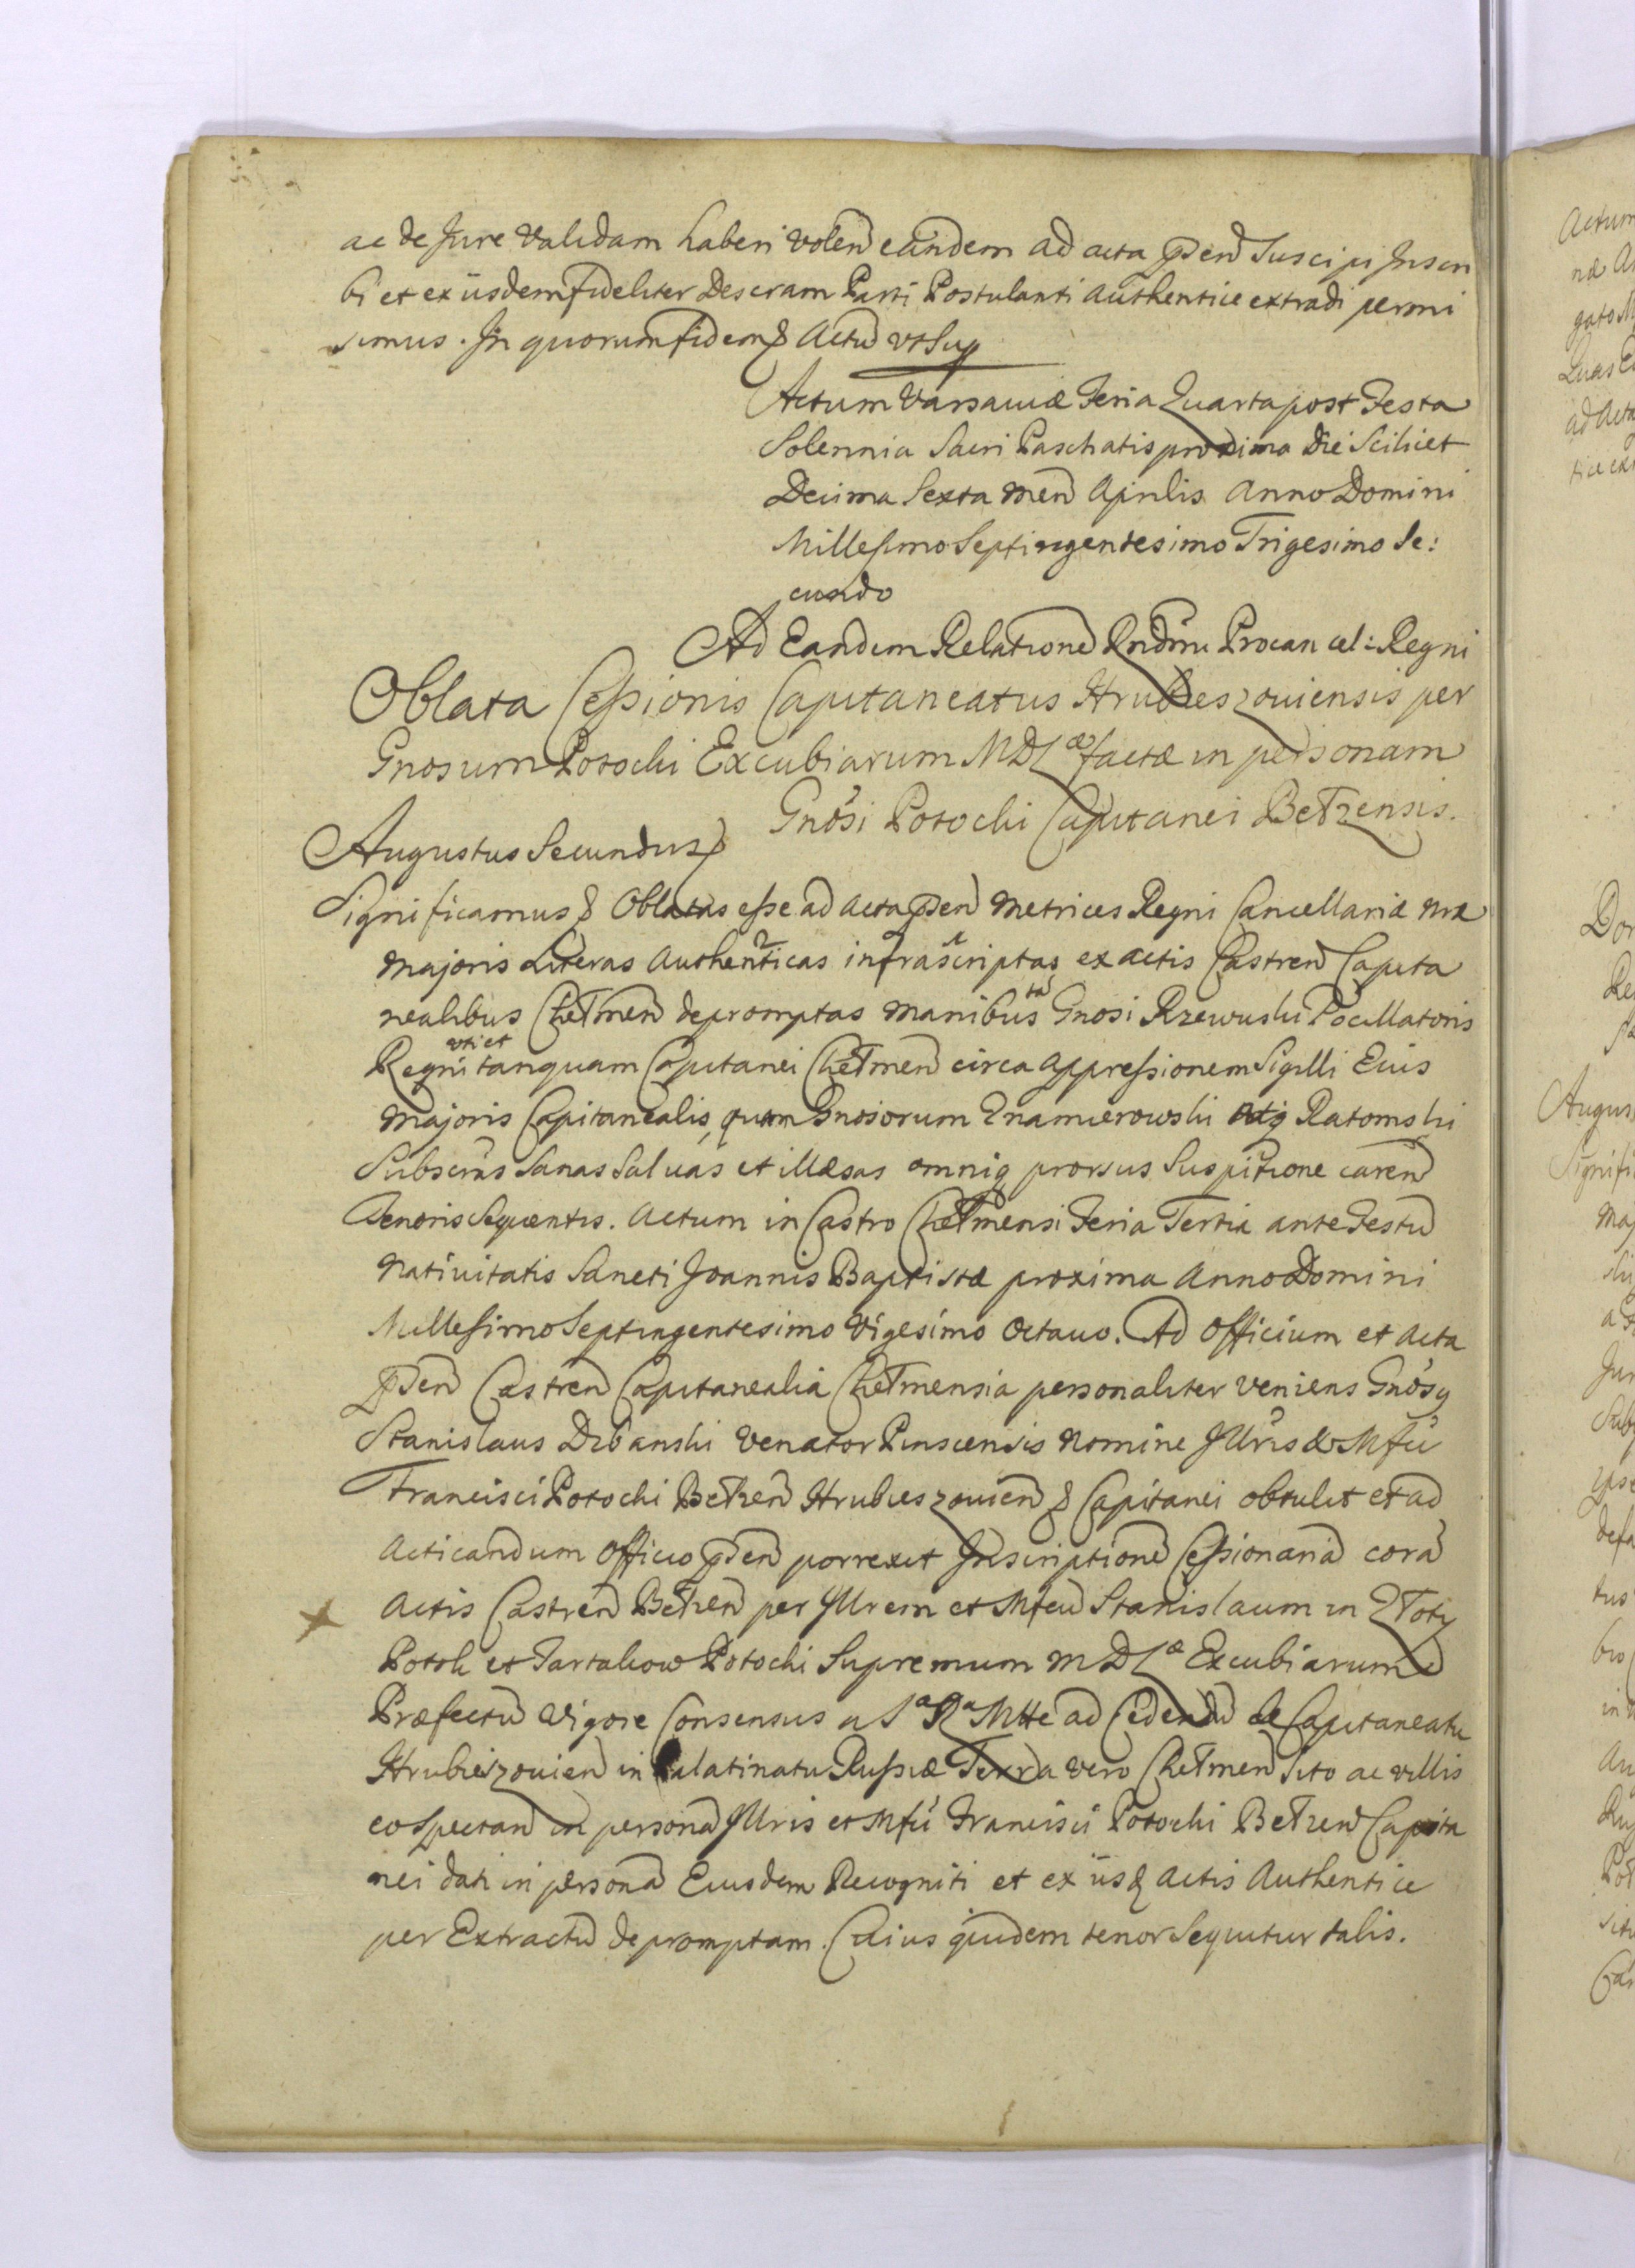 ac de Jure Validam haberi volen eandem ad acta pñden Suscipi Inscri
bi et ex iisdem fideliter Descram Parti Postulanti Authentice extradi permi
simus. In quorum fidem & Actu vt Sup
Actum Varsaviæ Feria Quarta post Festa
Solennia Sacri Paschatis proxima Die Scilicet
Decima Sexta Men Aprilis Anno Domini
Millesimo Septingentesimo Trigesimo Se:
cundo
Ad Eandem Relatione Rndmi Procancel: Regni
Oblata Cessionis Capitaneatus Hrubieszouiensis per
Gnosum Potocki Excubiarum MDLæ factæ in personam
Gnosi Potocki Capitanei Bełzensis.
Augustus Secundus
Significamus & Oblatas esse ad Acta pñden Metrices Regni Cancellariæ nræ
Majoris Literas Authenticas infrascriptas ex actis Castren Capita
nealibus Chełmen depromptas Manibus ta Gnosi Rzewuski Pocillatoris
Regni vti et tanquam Capitanei Chełmen circa appressionem Sigilli Eius
Majoris Capitanealis, quam Gnosorum Znamierowski Ratomski
Subscras Sanas Saluas et illæsas omniq prorsus Suspitione caren
Tenoris Sequentis. Actum in Castro Chełmensi Feria Tertia ante Festu
Nativitatis Sancti Joannis Baptistæ proxima Anno Domini
Millesimo Septingentesimo Vigesimo Octauo. Ad Officium et Acta
pñden Castren Capitanealia Chełmensia personaliter veniens Gnosq
Stanislaus Drbanski Venator Pinscensis Nomine Jllris & Mfci
Francisci Potocki Bełzen Hrubieszouien & Capitanei obtulit et ad
Acticandum Officio pñden porrexit Inscriptione Cessionaria cora
Actis Castren Bełzen per Jllrem et Mfcu Stanislaum in Złoty
Potok et Tartakow Potocki Supremum MDLæ Excubiarum
Præfectu Vigore Consensus a Sa Ra Mtte ad Cedendu de Capitaneatu
Hrubieszouien in Palatinatu Russiæ Terra vero Chełmen Sito ac villis
eo Spectan in persona Jllris et Mfci Francisci Potocki Bełzen Capita
nei dati in persona Eiusdem Recogniti et ex iisd Actis Authentice
per Extractu depromptam. Cuius quidem tenor Sequitur talis.